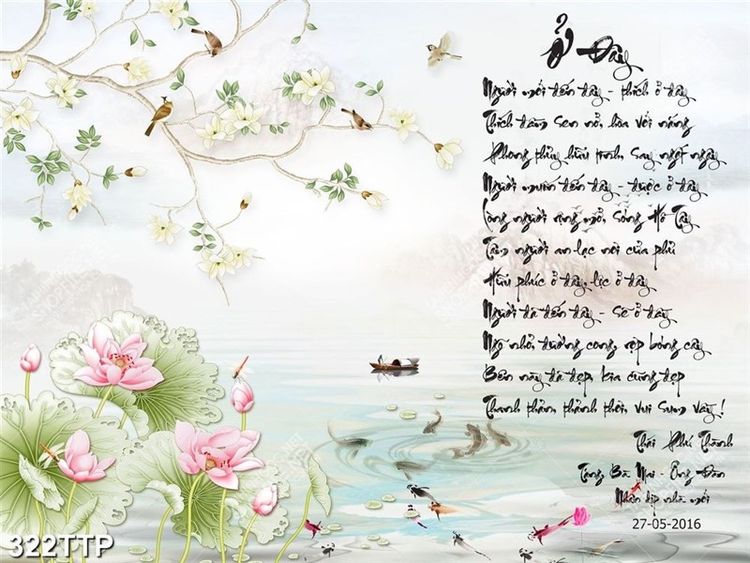 Ở Đây
Người mới đến đây - thích ở đây
Thích đầm Sen nở, hòa với nắng
Phong thủy hữu tình, Say ngất ngây
Người muốn đến đây - được ở đây
Lòng người rộng mở, Sóng Hồ Tây
Tâm người an lạc nơi cửa phủ
Hữu phúc ở đây, lộc ở đây
Người đã đến đây - Sẽ ở đây
Ngõ nhỏ, đường cong, rợp bóng cây
Bên này đã đẹp, bia cũng đẹp
Thanh thản, thảnh thơi, vui Sum vầy!
Thái Phú Thành
Tặng Bà Mai - Ông Dần
Nhân dịp nhà mới
27-05-2016
322TTP